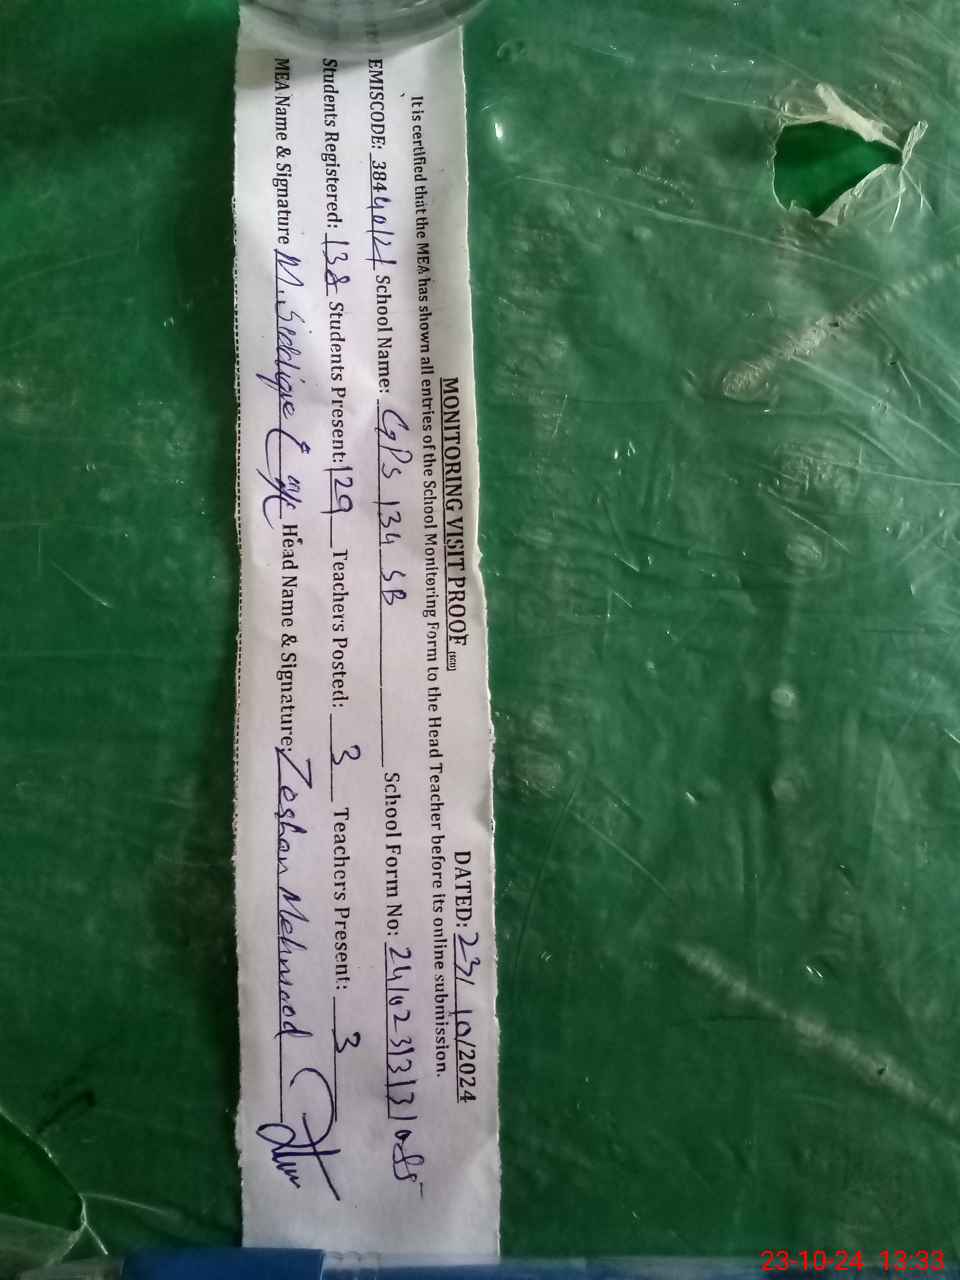 MONITORING VISIT PROOF DATED: 23/10/2024
It is certified that the MEA has shown all entries of the School Monitoring Form to the Head Teacher before its online submission.
EMISCODE: 384 School Name: GPS 134 SB School Form No:
Students Registered: 138 Students Present: 129 Teachers Posted: 3 Teachers Present: 3
MEA Name & Signature M. Siddique Head Name & Signature: Zeshan Mehmood
23-10-24 13:33